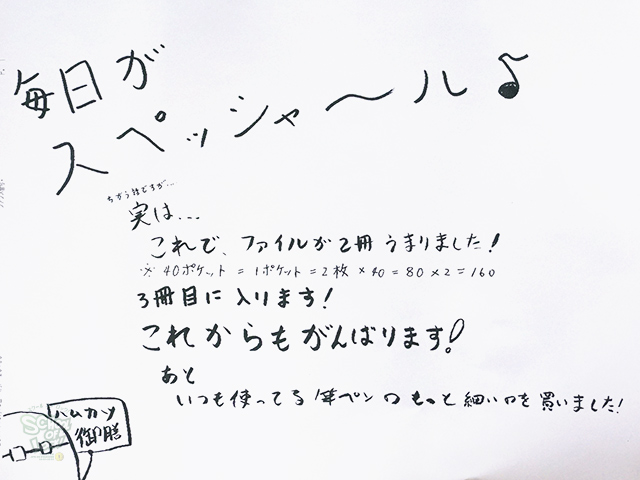 毎日が
スペッシャ〜ル♪
ちがう話ですが…
実は…
これで、ファイルが2冊うまりました!
※ 40ポケット = 1ポケット = 2枚 × 40 = 80 × 2 = 160
3冊目に入ります!
これからもがんばります!
あと
いつも使ってる筆ペンのもっと細いのを買いました!
ハムカツ
御膳